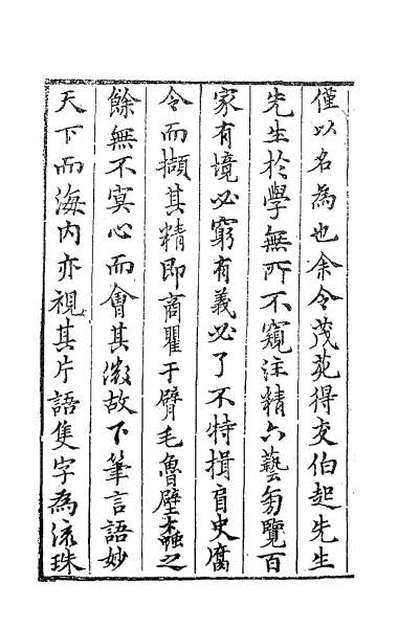 僅以名為也余令茂苑得交伯起先生
先生於學無所不窺注精六藝旁覽百
家有境必窮有義必了不特揖盲史腐
令而擷其精即商瞿于臂毛魯壁蠹之
餘無不冥心而會其微故下筆言語妙
天下而海內亦視其片語隻字為流珠